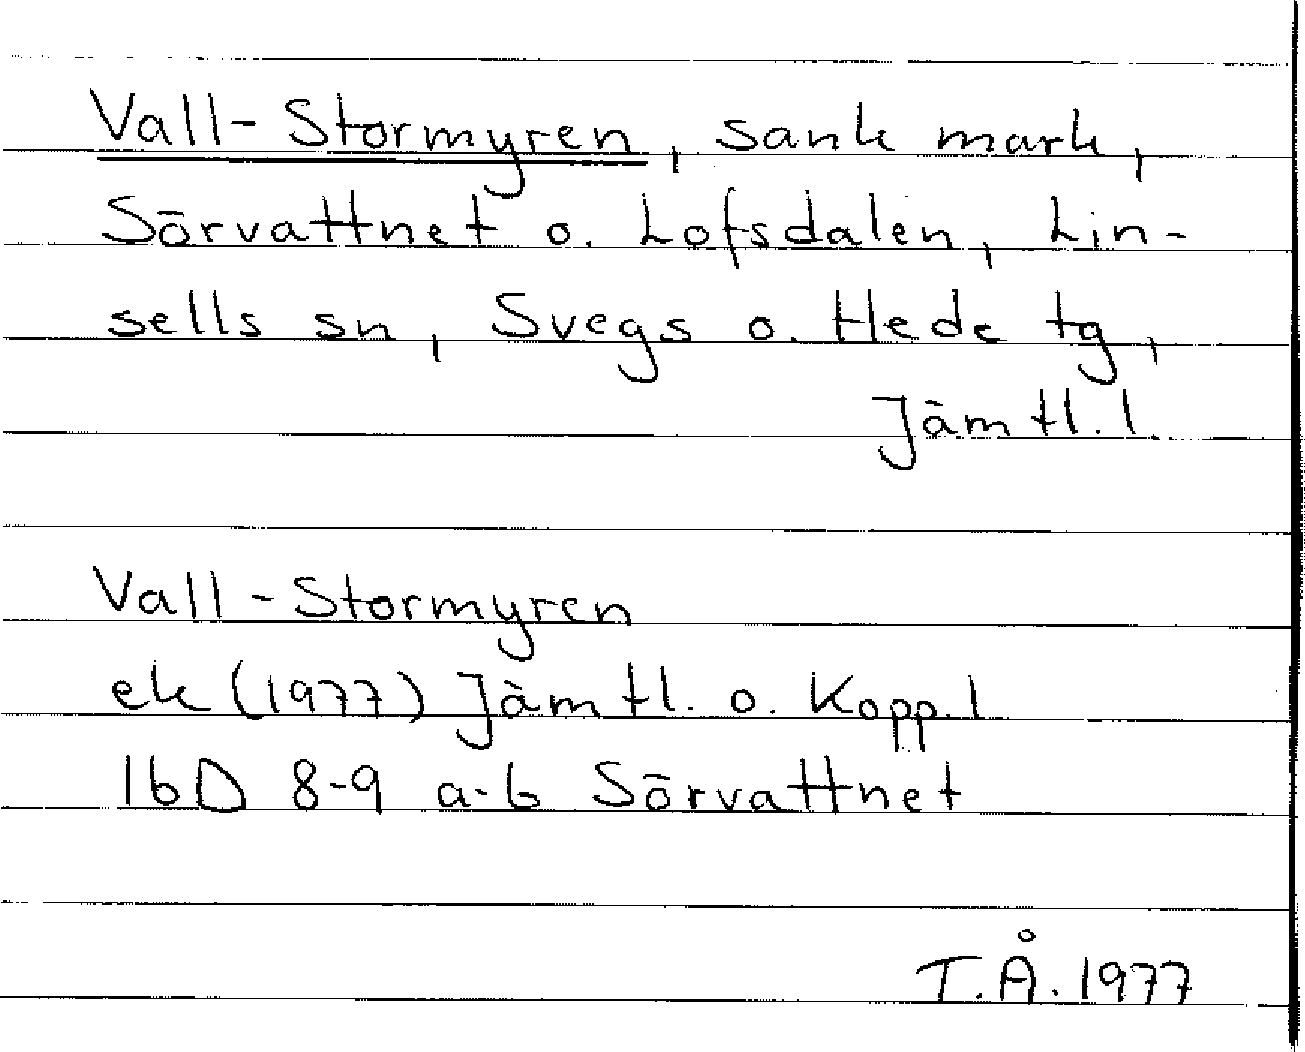 Vall-Stormyren, sank mark,
Sörvattnet o. Lofsdalen, Lin-
sells sn, Svegs o. Hede tg,
Jämtl. l.
Vall-Stormyren
ek (1977) Jämtl. o. Kopp. l
16D 8-9 a-b Sörvattnet
T.Å. 1977